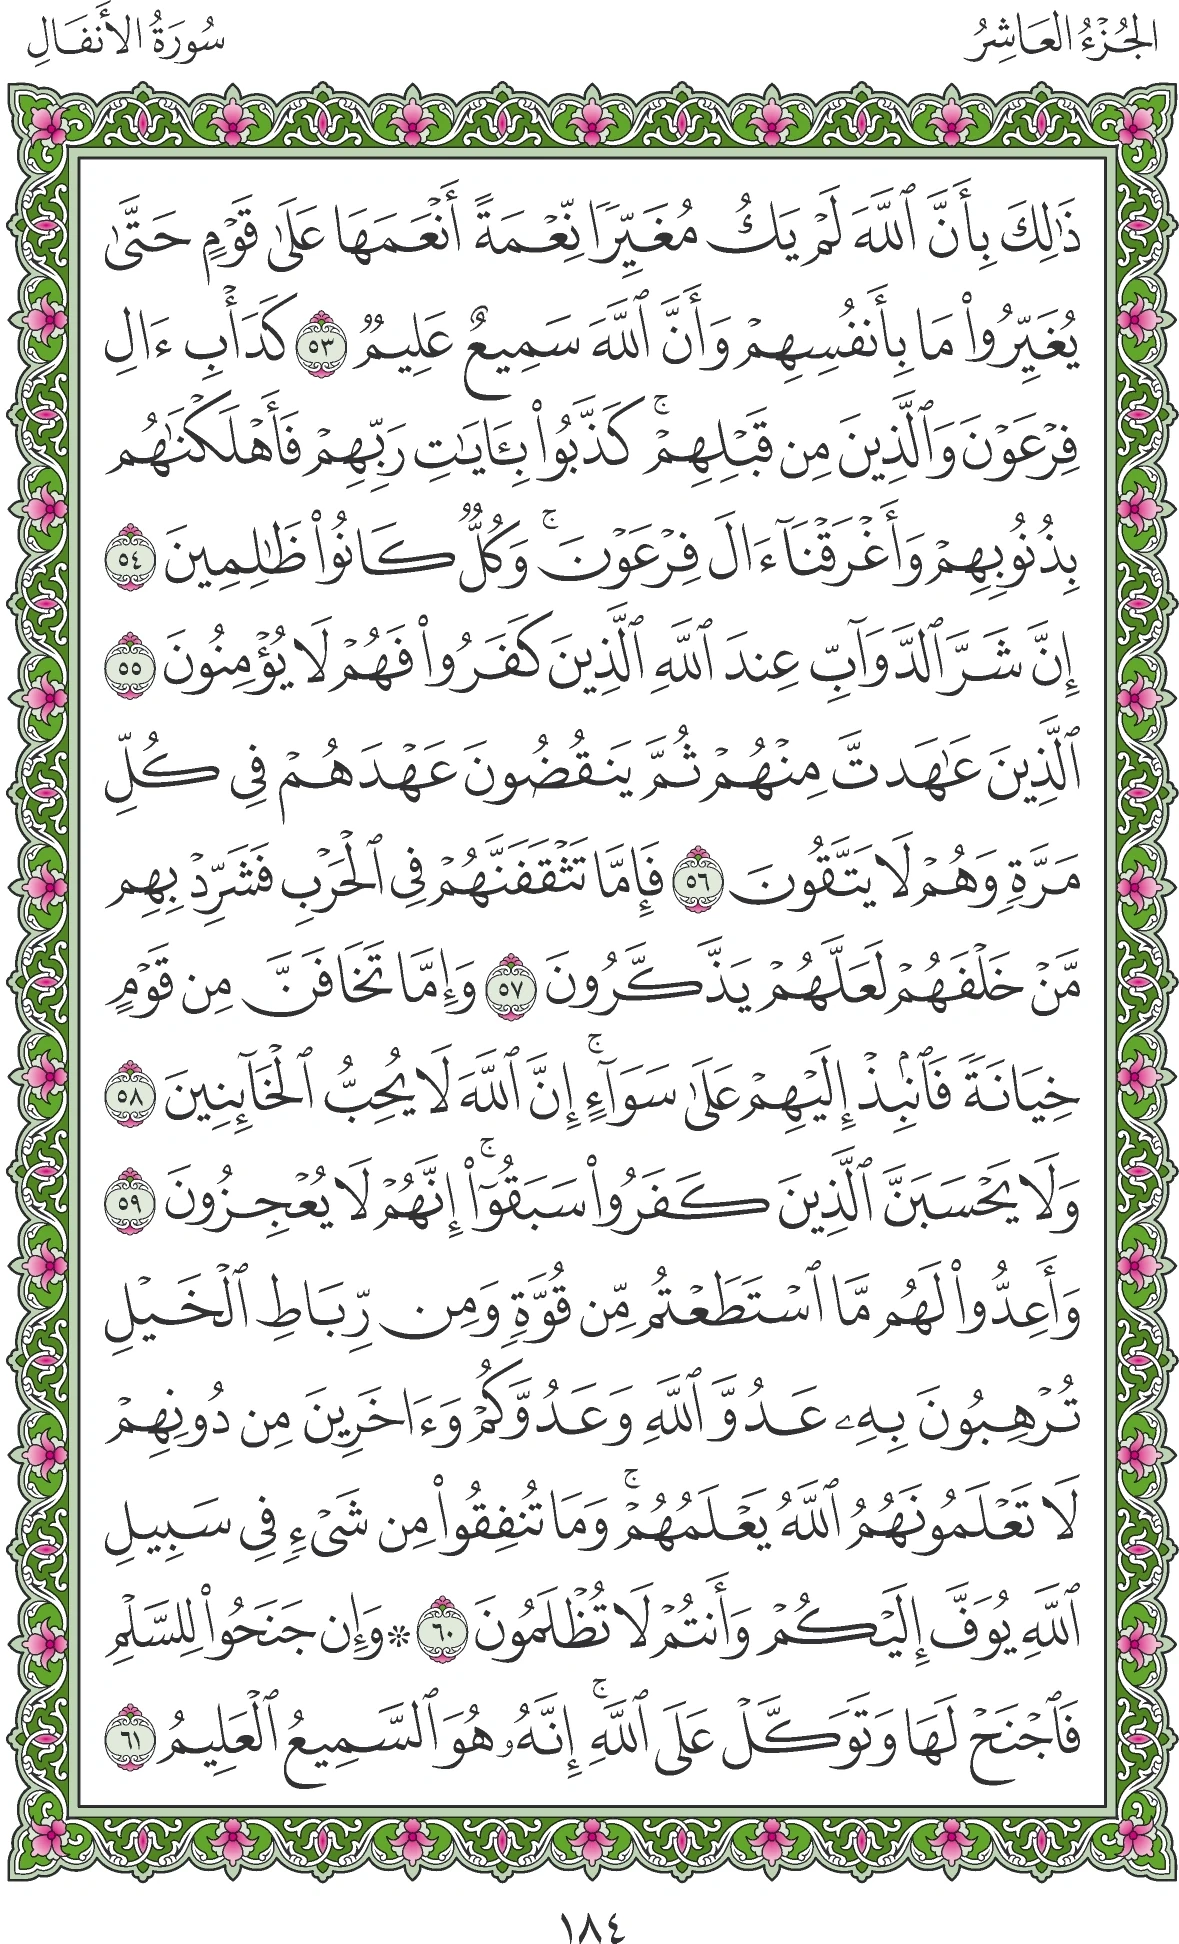 الجُزْءُ العَاشِرُ
سُورَةُ الأَنفَالِ
ذَٰلِكَ بِأَنَّ ٱللَّهَ لَمْ يَكُ مُغَيِّرًا نِّعْمَةً أَنْعَمَهَا عَلَىٰ قَوْمٍ حَتَّىٰ
يُغَيِّرُوا۟ مَا بِأَنفُسِهِمْ وَأَنَّ ٱللَّهَ سَمِيعٌ عَلِيمٌ ٥٣ كَدَأْبِ ءَالِ
فِرْعَوْنَ وَٱلَّذِينَ مِن قَبْلِهِمْ ۚ كَذَّبُوا۟ بِـَٔايَـٰتِ رَبِّهِمْ فَأَهْلَكْنَـٰهُم
بِذُنُوبِهِمْ وَأَغْرَقْنَآ ءَالَ فِرْعَوْنَ ۚ وَكُلٌّ كَانُوا۟ ظَـٰلِمِينَ ٥٤
إِنَّ شَرَّ ٱلدَّوَآبِّ عِندَ ٱللَّهِ ٱلَّذِينَ كَفَرُوا۟ فَهُمْ لَا يُؤْمِنُونَ ٥٥
ٱلَّذِينَ عَـٰهَدتَّ مِنْهُمْ ثُمَّ يَنقُضُونَ عَهْدَهُمْ فِى كُلِّ
مَرَّةٍ وَهُمْ لَا يَتَّقُونَ ٥٦ فَإِمَّا تَثْقَفَنَّهُمْ فِى ٱلْحَرْبِ فَشَرِّدْ بِهِم
مَّنْ خَلْفَهُمْ لَعَلَّهُمْ يَذَّكَّرُونَ ٥٧ وَإِمَّا تَخَافَنَّ مِن قَوْمٍ
خِيَانَةً فَٱنۢبِذْ إِلَيْهِمْ عَلَىٰ سَوَآءٍ ۚ إِنَّ ٱللَّهَ لَا يُحِبُّ ٱلْخَآئِنِينَ ٥٨
وَلَا يَحْسَبَنَّ ٱلَّذِينَ كَفَرُوا۟ سَبَقُوٓا۟ ۚ إِنَّهُمْ لَا يُعْجِزُونَ ٥٩
وَأَعِدُّوا۟ لَهُم مَّا ٱسْتَطَعْتُم مِّن قُوَّةٍ وَمِن رِّبَاطِ ٱلْخَيْلِ
تُرْهِبُونَ بِهِۦ عَدُوَّ ٱللَّهِ وَعَدُوَّكُمْ وَءَاخَرِينَ مِن دُونِهِمْ
لَا تَعْلَمُونَهُمُ ٱللَّهُ يَعْلَمُهُمْ ۚ وَمَا تُنفِقُوا۟ مِن شَىْءٍ فِى سَبِيلِ
ٱللَّهِ يُوَفَّ إِلَيْكُمْ وَأَنتُمْ لَا تُظْلَمُونَ ٦٠ * وَإِن جَنَحُوا۟ لِلسَّلْمِ
فَٱجْنَحْ لَهَا وَتَوَكَّلْ عَلَى ٱللَّهِ ۚ إِنَّهُۥ هُوَ ٱلسَّمِيعُ ٱلْعَلِيمُ ٦١
١٨٤